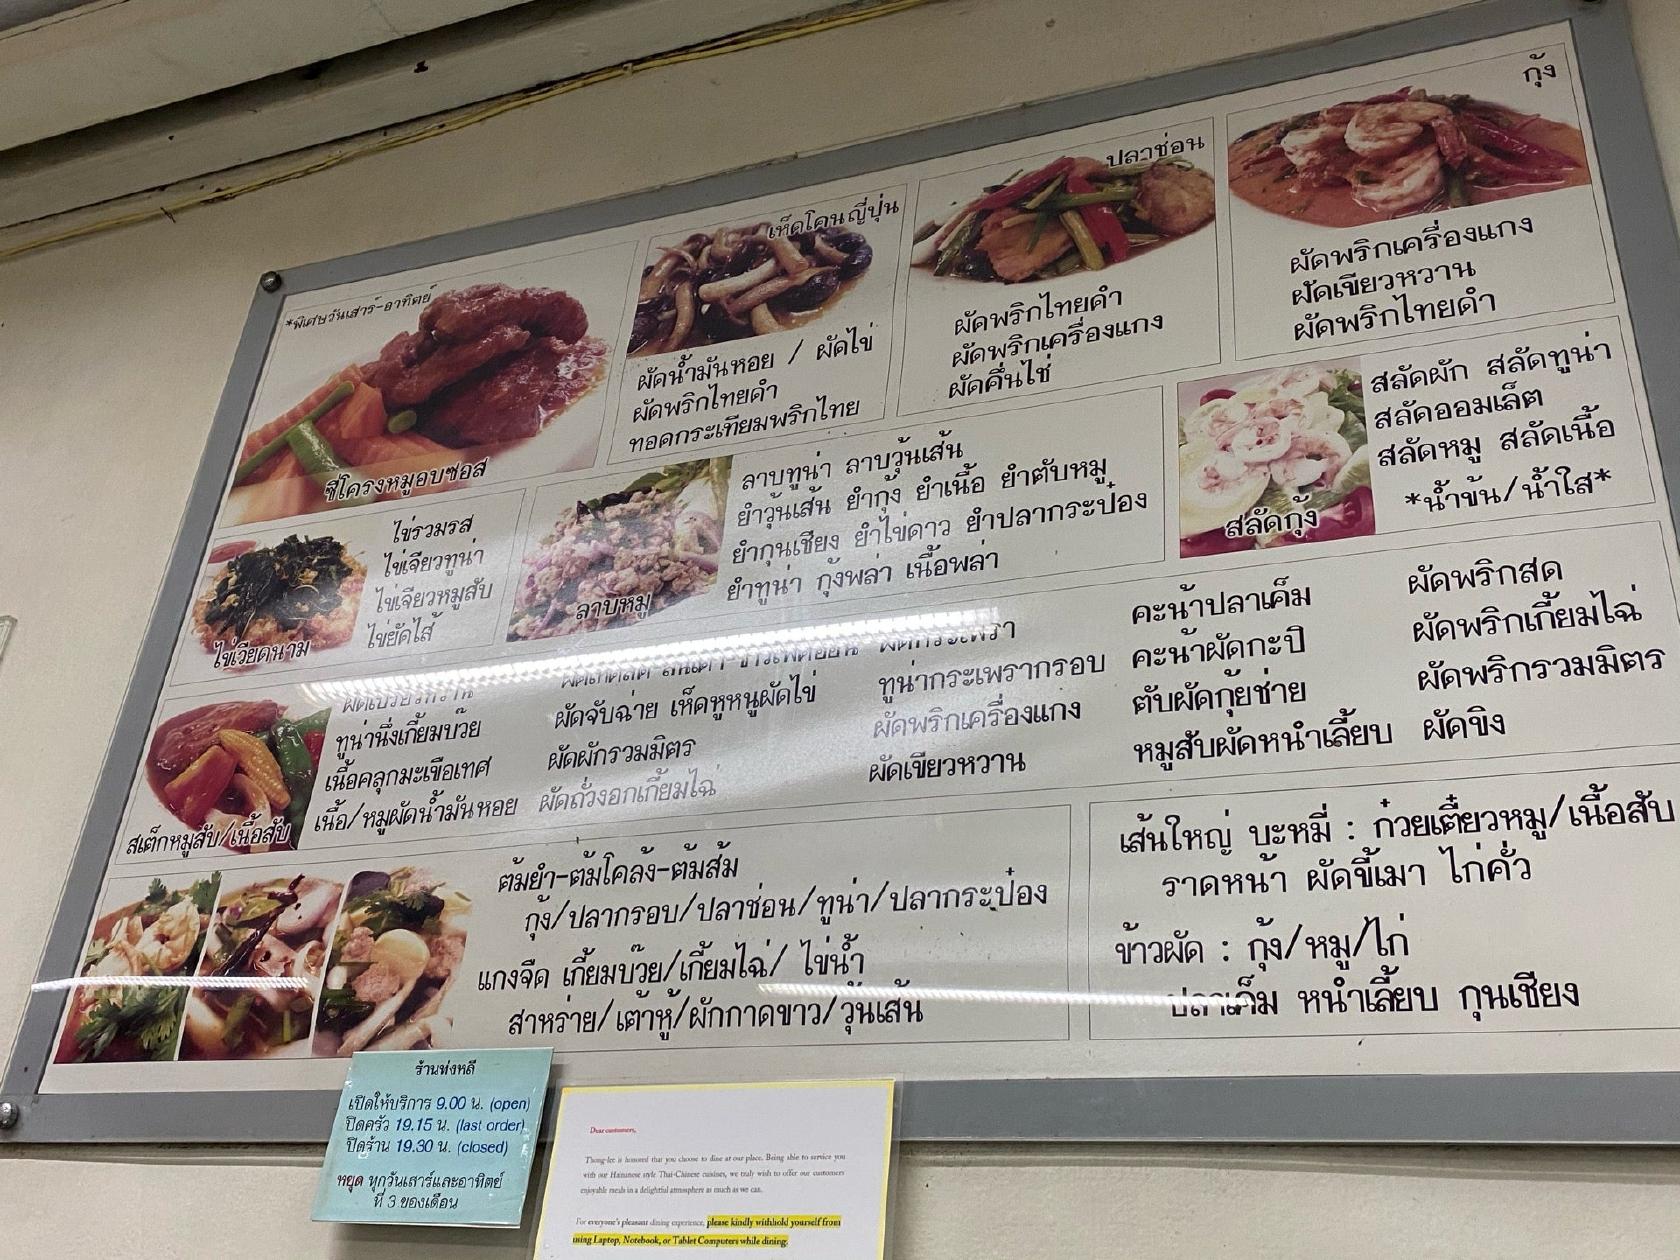 *พิเศษวันเสาร์-อาทิตย์
ซี่โครงหมูอบซอส
เห็ดโคนญี่ปุ่น
ผัดน้ำมันหอย / ผัดไข่
ผัดพริกไทยดำ
ทอดกระเทียมพริกไทย
ปลาช่อน
ผัดพริกไทยดำ
ผัดพริกเครื่องแกง
ผัดคึ่นไช่
กุ้ง
ผัดพริกเครื่องแกง
ผัดเขียวหวาน
ผัดพริกไทยดำ
ไข่เวียดนาม
ไข่รวมรส
ไข่เจียวทูน่า
ไข่เจียวหมูสับ
ไข่ยัดไส้
ลาบหมู
ลาบทูน่า ลาบวุ้นเส้น
ยำวุ้นเส้น ยำกุ้ง ยำเนื้อ ยำตับหมู
ยำกุนเชียง ยำไข่ดาว ยำปลากระป๋อง
ยำทูน่า กุ้งพล่า เนื้อพล่า
สลัดกุ้ง
สลัดผัก สลัดทูน่า
สลัดออมเล็ต
สลัดหมู สลัดเนื้อ
*น้ำข้น/น้ำใส*
สเต็กหมูสับ/เนื้อสับ
ผัดเปรี้ยวหวาน
ทูน่านึ่งเกี้ยมบ๊วย
เนื้อคลุกมะเขือเทศ
เนื้อ/หมูผัดน้ำมันหอย
ผัดจับฉ่าย เห็ดหูหนูผัดไข่
ผัดผักรวมมิตร
ผัดถั่วงอกเกี้ยมไฉ่
ผัดกระเพรา
ทูน่ากระเพรากรอบ
ผัดพริกเครื่องแกง
ผัดเขียวหวาน
คะน้าปลาเค็ม
คะน้าผัดกะปิ
ตับผัดกุ้ยช่าย
หมูสับผัดหนำเลี้ยบ
ผัดพริกสด
ผัดพริกเกี้ยมไฉ่
ผัดพริกรวมมิตร
ผัดขิง
ต้มยำ-ต้มโคล้ง-ต้มส้ม
กุ้ง/ปลากรอบ/ปลาช่อน/ทูน่า/ปลากระป๋อง
แกงจืด เกี้ยมบ๊วย/เกี้ยมไฉ่/ ไข่น้ำ
สาหร่าย/เต้าหู้/ผักกาดขาว/วุ้นเส้น
เส้นใหญ่ บะหมี่ : ก๋วยเตี๋ยวหมู/เนื้อสับ
ราดหน้า ผัดขี้เมา ไก่คั่ว
ข้าวผัด : กุ้ง/หมู/ไก่
ปลาเค็ม หนำเลี้ยบ กุนเชียง
ร้านท่งหลี
เปิดให้บริการ 9.00 น. (open)
ปิดครัว 19.15 น. (last order)
ปิดร้าน 19.30 น. (closed)
หยุด ทุกวันเสาร์และอาทิตย์
ที่ 3 ของเดือน
Dear customers,
Thong-lee is honored that you choose to dine at our place. Being able to service you
with our Hainanese style Thai-Chinese cuisines, we truly wish to offer our customers
enjoyable meals in a delightful atmosphere as much as we can.
For everyone's pleasant dining experience, please kindly withhold yourself from
using Laptop, Notebook, or Tablet Computers while dining.